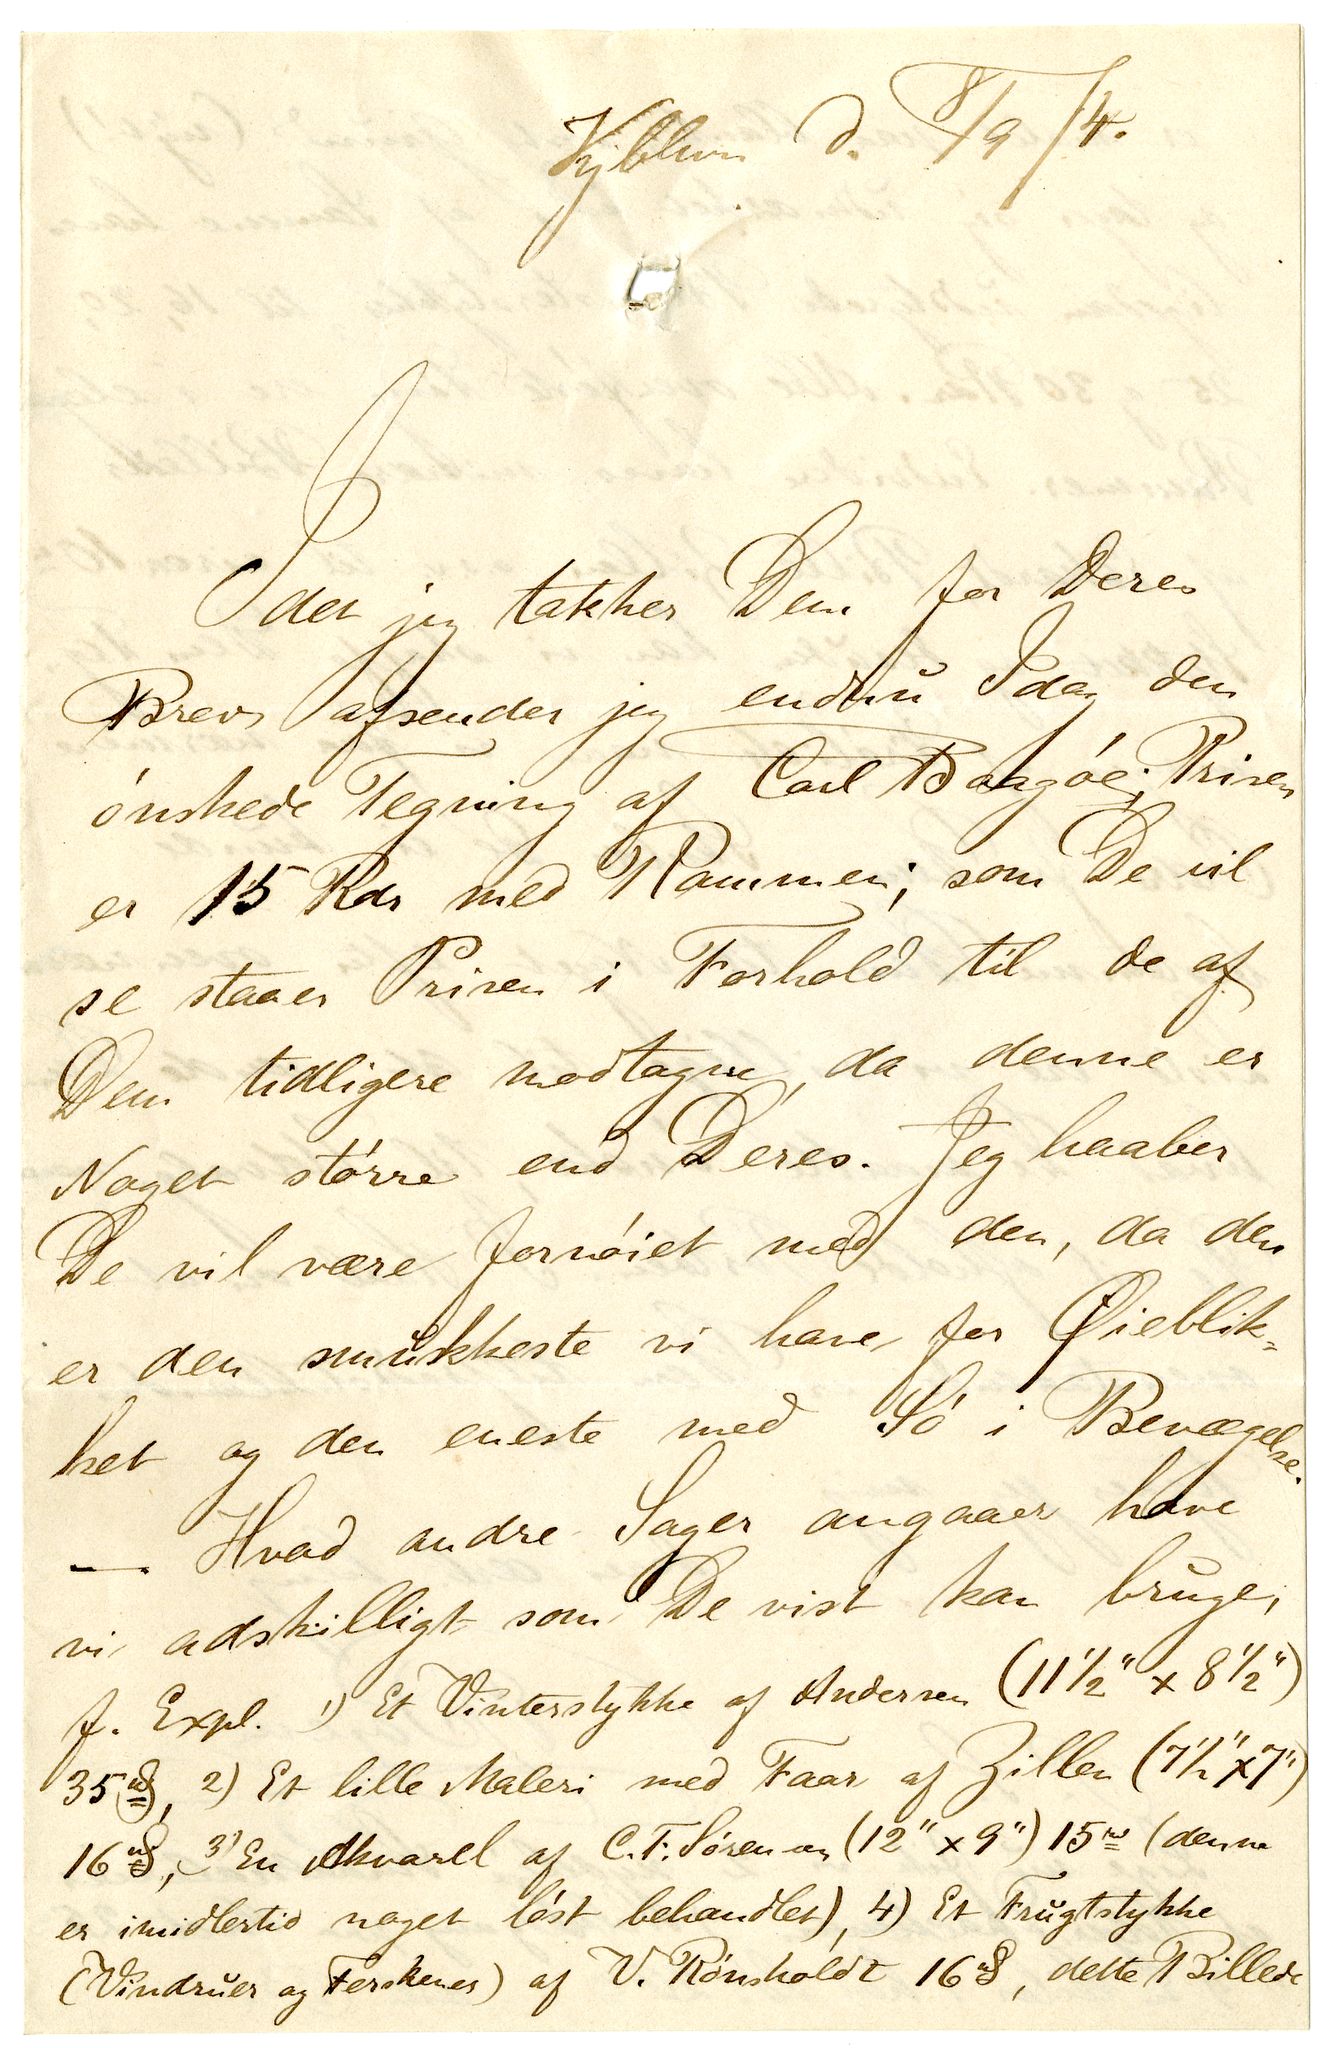 Kjbhvn d. 8/9 74.
Idet jeg takker Dem for Deres
Brev afsender jeg endnu Idag den
ønskede Tegning af Carl Baagöe; Prisen
er 15 Rdr med Rammen; som De vil
se staaer Prisen i Forhold til de af
Dem tidligere modtagne, da denne er
Noget större end Deres. Jeg haaber
De vil være fornöiet med den, da den
er den smukkeste vi have for Øieblik-
ket og den eneste med Sö i Bevægelse.
— Hvad andre Sager angaaer have
vi adskilligt som De vist kan bruge,
f. Expl. 1) Et Vinterstykke af Andersen (11 1/2" x 8 1/2")
35 rd, 2) Et lille Maleri med Faar af Zillen (7 1/2" x 7")
16 rd, 3) En Akvarel af C. F. Sørensen (12" x 9") 15 rd (denne
er imidlertid noget löst behandlet), 4) Et Frugtstykke
(Vindruer og Ferskener) af V. Rönsholdt 16 rd, dette Billede